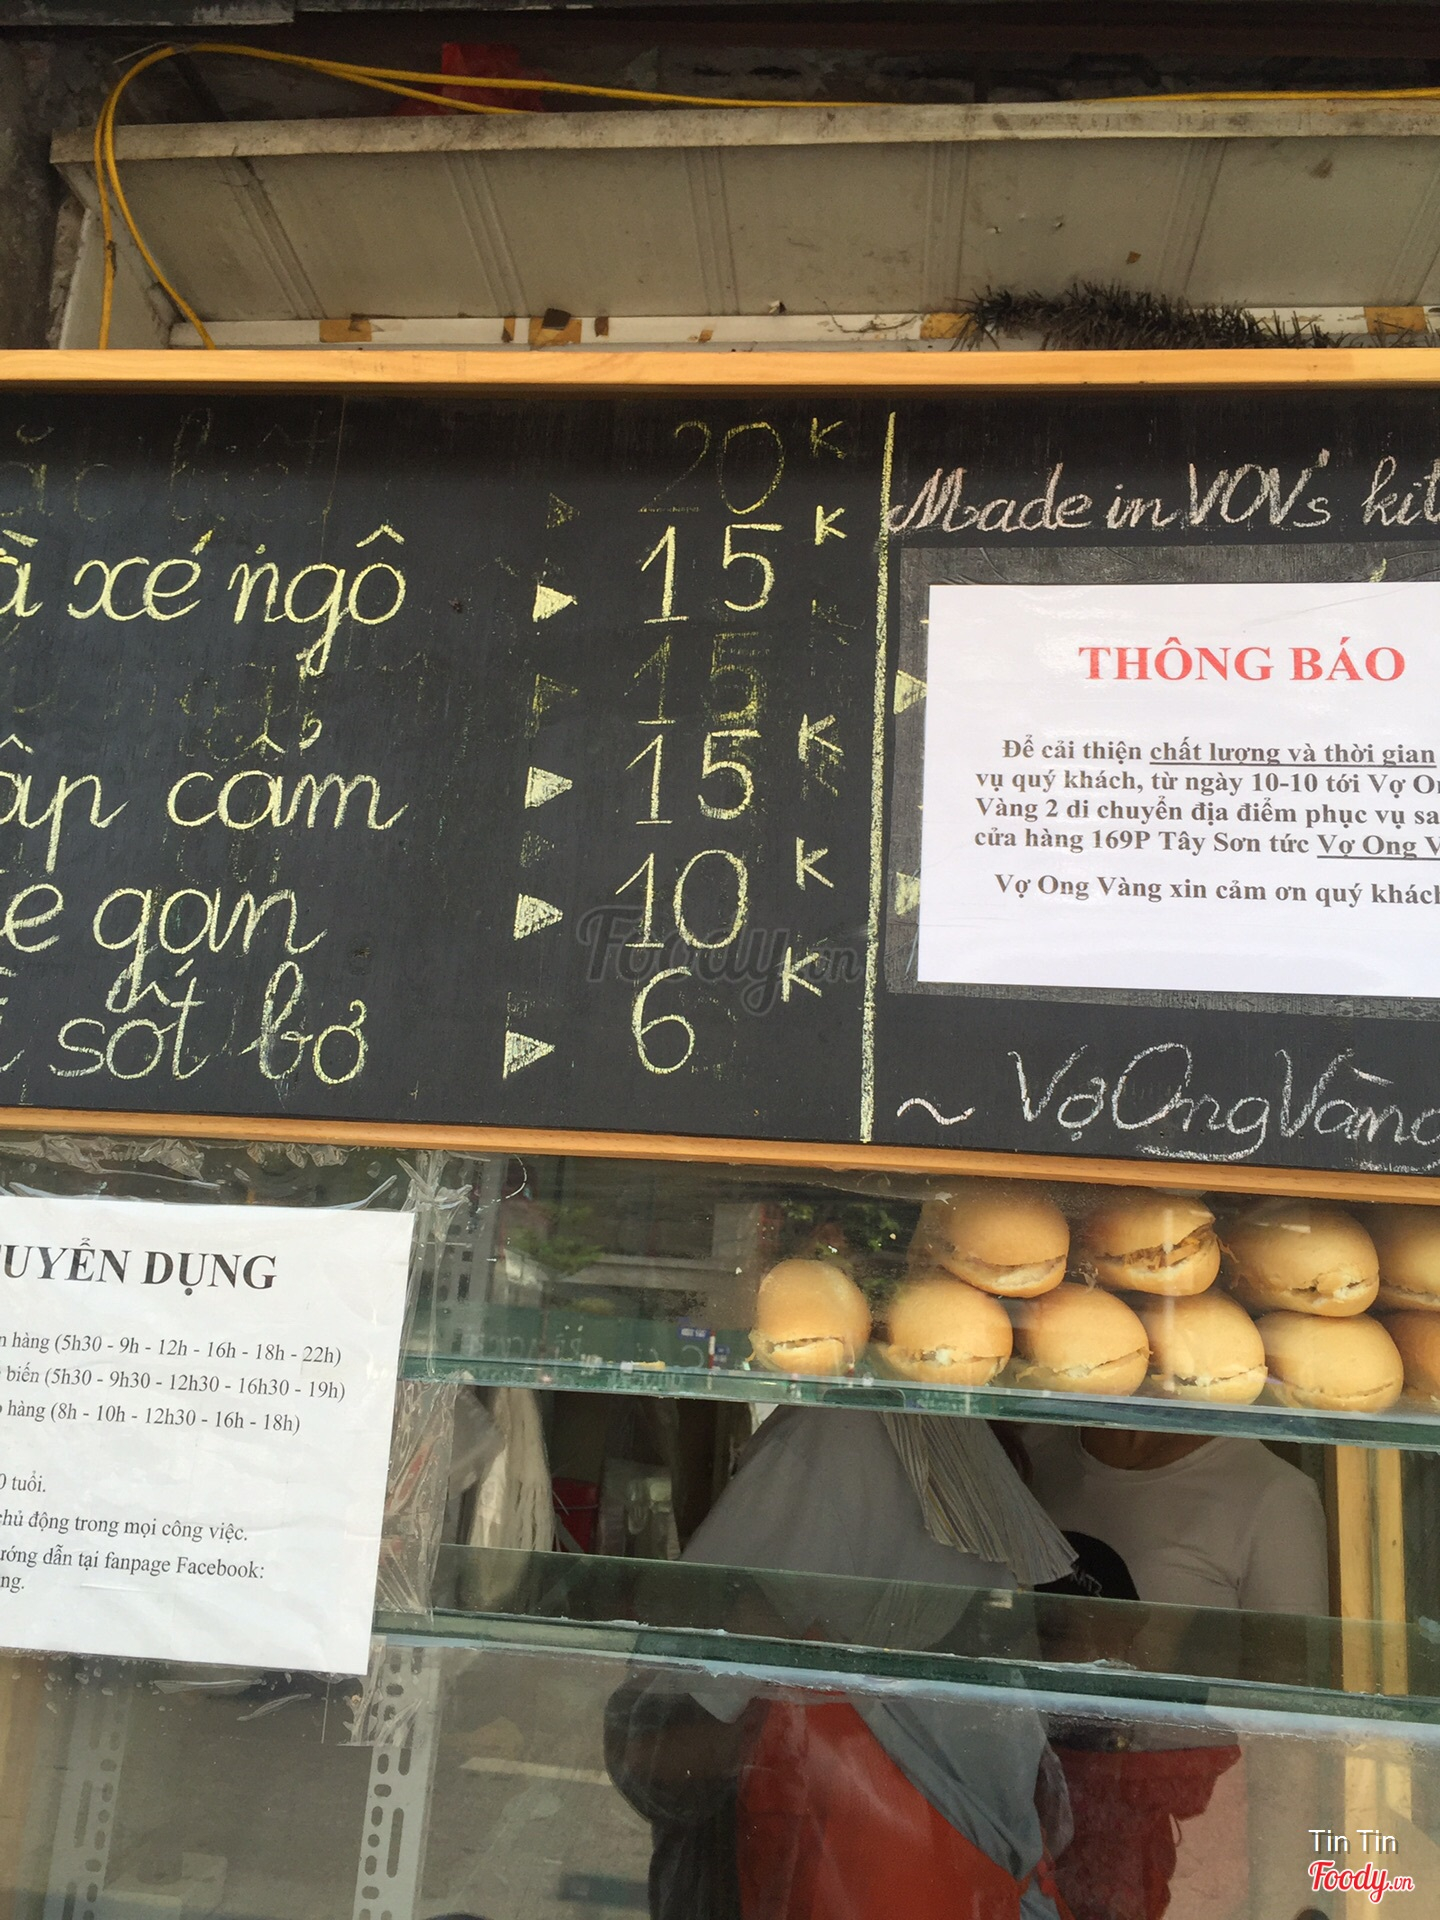 20 K
à xé ngô ▶ 15 K
15
ập cẩm ▶ 15 K
te gan ▶ 10 K
sốt bơ ▶ 6 K
Made in VOV's kit
THÔNG BÁO
Để cải thiện chất lượng và thời gian
vụ quý khách, từ ngày 10-10 tới Vợ On
Vàng 2 di chuyển địa điểm phục vụ sa
cửa hàng 169P Tây Sơn tức Vợ Ong V
Vợ Ong Vàng xin cảm ơn quý khách
~ Vợ Ong Vàng
TUYỂN DỤNG
n hàng (5h30 - 9h - 12h - 16h - 18h - 22h)
biến (5h30 - 9h30 - 12h30 - 16h30 - 19h)
hàng (8h - 10h - 12h30 - 16h - 18h)
0 tuổi.
chủ động trong mọi công việc.
ướng dẫn tại fanpage Facebook:
ng.
Foody.vn
Tin Tin
Foody.vn